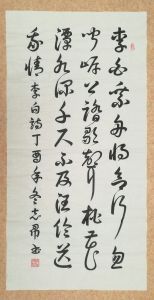 李白乘舟將欲行忽
聞岸上踏歌聲桃花
潭水深千尺不及汪倫送
我情 李白詩丁酉年冬志昂書